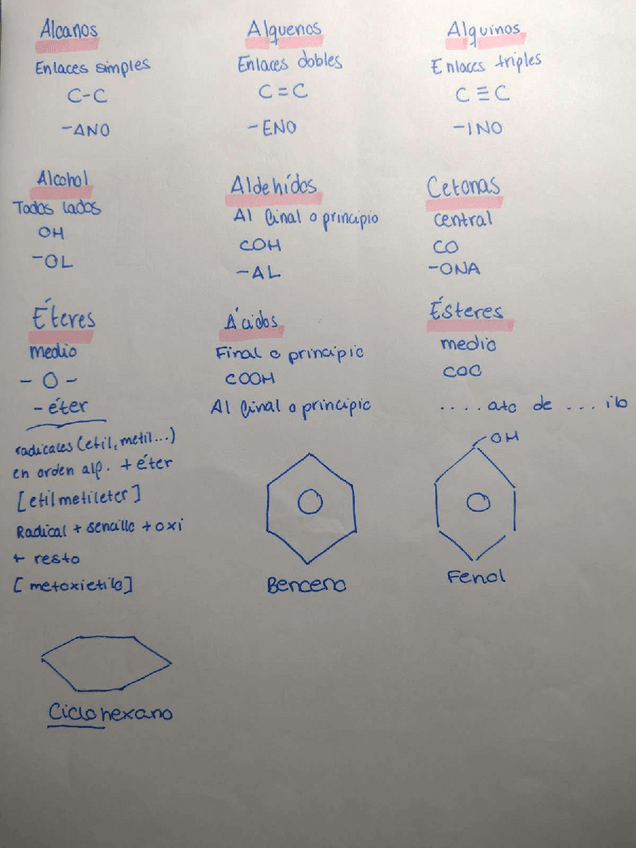 Alcanos
Enlaces simples
C-C
-ANO
Alquenos
Enlaces dobles
C=C
-ENO
Alquinos
Enlaces triples
C≡C
-INO
Alcohol
Todos lados
OH
-OL
Aldehídos
Al final o principio
COH
-AL
Cetonas
central
CO
-ONA
Éteres
medio
-O-
-éter
radicales (etil, metil...)
en orden alp. + éter
[etilmetileter]
Radical + sencillo + oxi
+ resto
[metoxietilo]
Ácidos
Final o principio
COOH
Al final o principio
Ésteres
medio
COO
....ato de ...ilo
Benceno
OH
Fenol
Ciclohexano